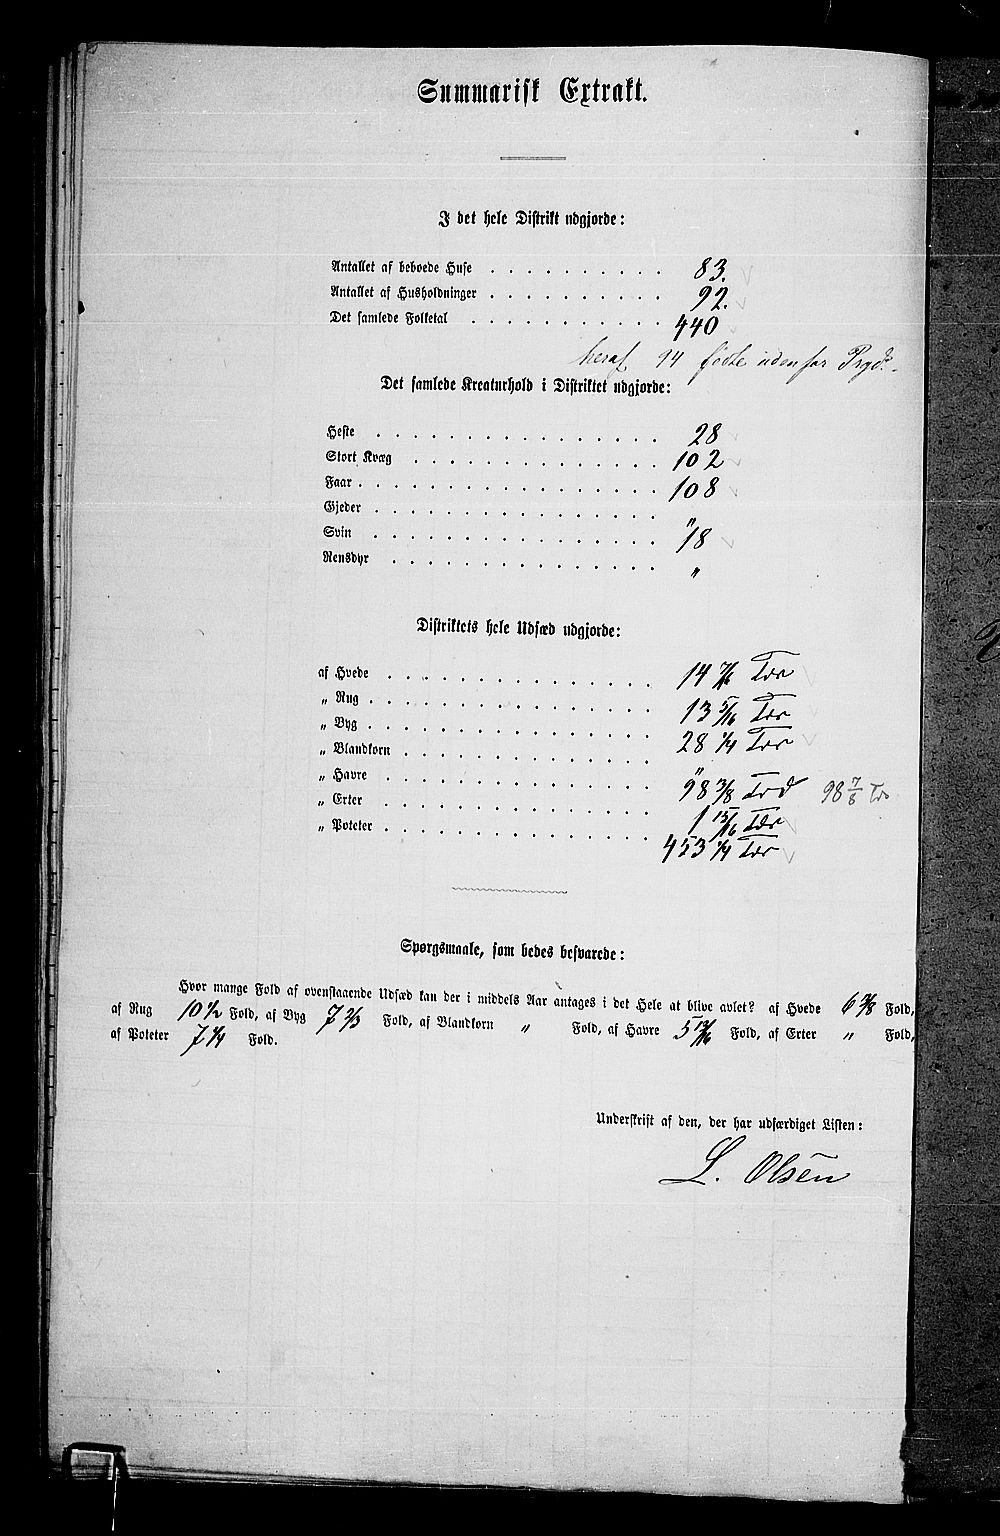 Summarisk Extrakt.
I det hele Distrikt udgjorde:
Antallet af beboede Huse . . . . . . . . . . 83.
Antallet af Husholdninger . . . . . . . . . . 92.
Det samlede Folketal . . . . . . . . . . . 440
heraf 94 fødte udenfor Prgd.
Det samlede Kreaturhold i Distriktet udgjorde:
Heste . . . . . . . . . . . . . . . . 28
Stort Kvæg . . . . . . . . . . . . . . 102
Faar . . . . . . . . . . . . . . . . . 108
Gjeder . . . . . . . . . . . . . . . . "
Svin . . . . . . . . . . . . . . . . 18
Rensdyr . . . . . . . . . . . . . . . "
Distriktets hele Udsæd udgjorde:
af Hvede . . . . . . . . . . . . . . . 14 7/16 Tdr
„ Rug . . . . . . . . . . . . . . . . 13 5/16 Tdr
„ Byg . . . . . . . . . . . . . . . . 28 1/4 Tdr
„ Blandkorn . . . . . . . . . . . . . . "
„ Havre . . . . . . . . . . . . . . . 98 3/8 Tdr 98 7/8 Tdr
„ Erter . . . . . . . . . . . . . . . 1 15/16 Tdr
„ Poteter . . . . . . . . . . . . . . . 453 1/4 Tdr
Spørgsmaale, som bedes besvarede:
Hvor mange Fold af ovenstaaende Udsæd kan der i middels Aar antages i det Hele at blive avlet? af Hvede 6 3/8 Fold,
af Rug 10 1/2 Fold, af Byg 7 2/3 Fold, af Blandkorn " Fold, af Havre 5 13/16 Fold, af Erter " Fold,
af Poteter 7 1/4 Fold.
Underskrift af den, der har udfærdiget Listen:
L. Olsen